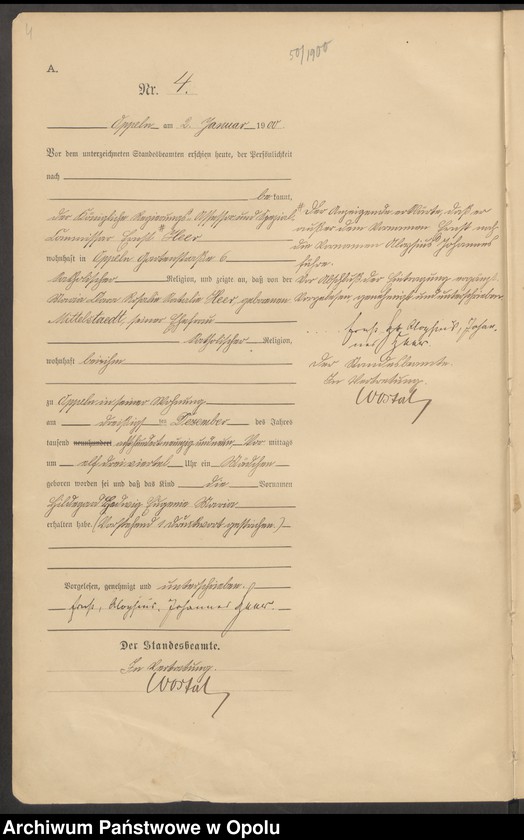 4
50/1900
A.
Nr. 4.
Oppeln am 2. Januar 1900
Vor dem unterzeichneten Standesbeamten erschien heute, der Persönlichkeit
nach
bekannt,
der Königliche Regierungs-Assessor und Spezial-
Commissar Ernst * Heer
wohnhaft in Oppeln Gartenstraße 6
katholischer Religion, und zeigte an, daß von der
Maria Rosalie Heer, geborenen
Mittelstaedt, seiner Ehefrau
katholischer Religion,
wohnhaft bei ihm
zu Oppeln in seiner Wohnung
am dreißig ten Dezember des Jahres
tausend neunhundert achthundert neunzig und neun Vor mittags
um elf dreiviertel Uhr ein Mädchen
geboren worden sei und daß das Kind die Vornamen
Hildegard Hedwig Eugenie Maria
erhalten habe. (Vorstehend 1 Druckwort gestrichen.)
Vorgelesen, genehmigt und unterschrieben.
Ernst, Aloysius, Johannes Heer.
Der Standesbeamte.
In Vertretung.
Wostal
* Der Anzeigende erklärte, daß er
außer dem Vornamen Ernst noch
die Vornamen Aloysius Johannes
führe.
Vor Abschluß der Eintragung ergänzt.
Vorgelesen, genehmigt und unterschrieben
Ernst, Aloysius, Johan-
nes Heer.
Der Standesbeamte.
In Vertretung.
Wostal
Archiwum Państwowe w Opolu